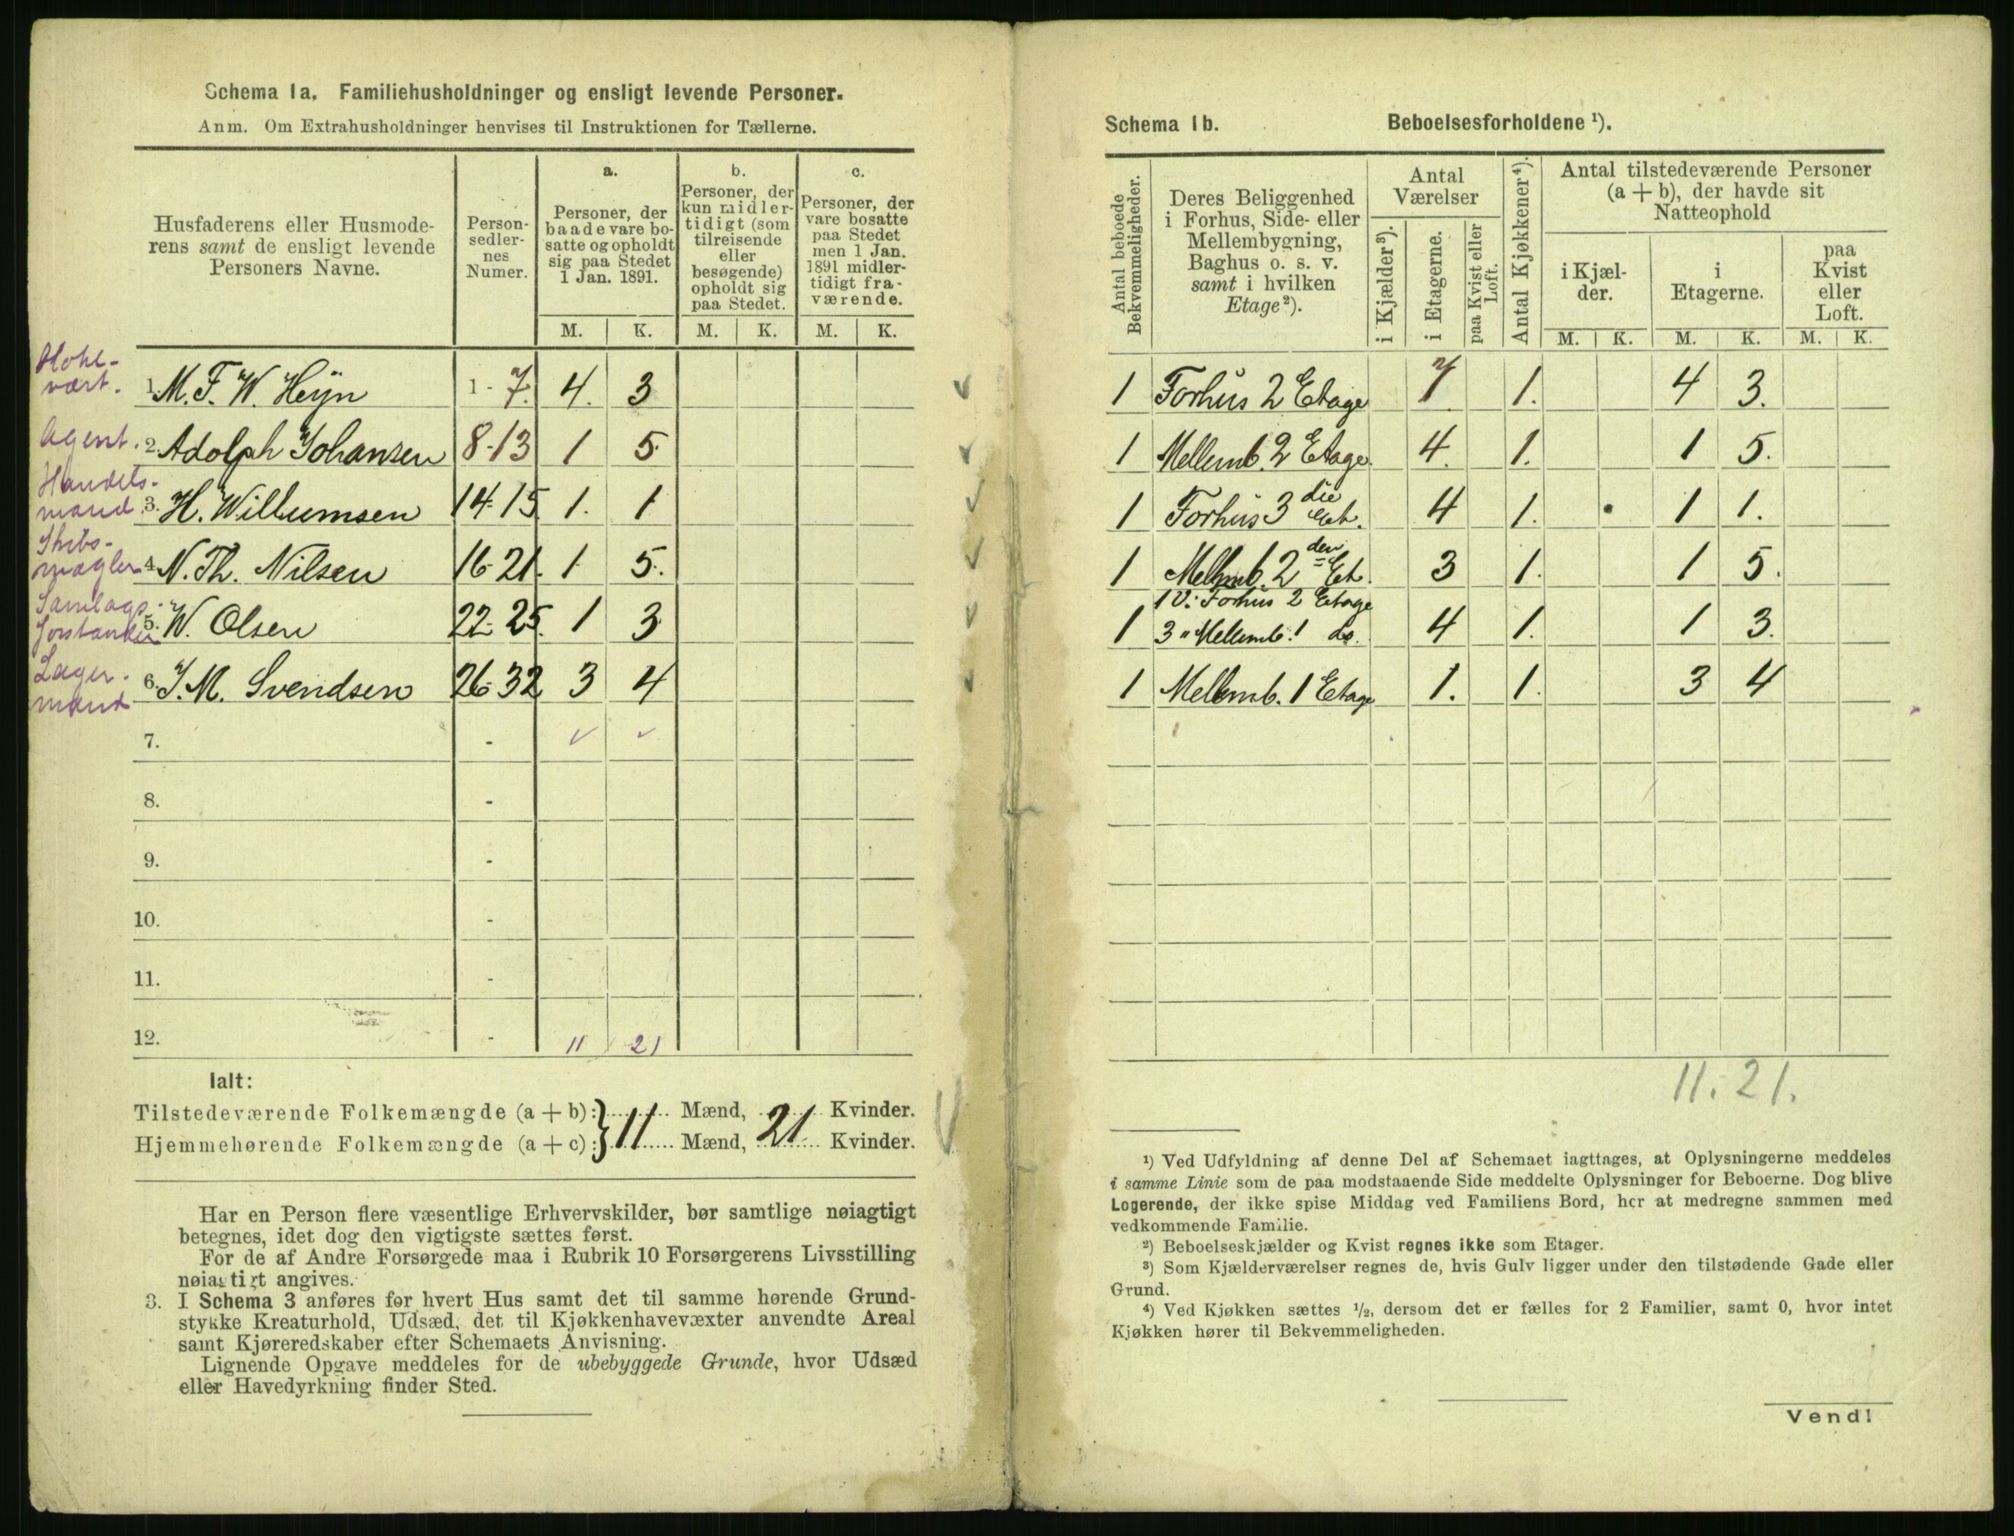 Schema 1a. Familiehusholdninger og ensligt levende Personer.
Anm. Om Extrahusholdninger henvises til Instruktionen for Tællerne.
Husfaderens eller Husmode-
rens samt de ensligt levende
Personers Navne.
Person-
sedler-
nes
Numer.
a.
Personer, der
baade vare bo-
satte og opholdt
sig paa Stedet
1 Jan. 1891.
b.
Personer, der
kun midler-
tidigt (som
tilreisende
eller
besøgende)
opholdt sig
paa Stedet.
c.
Personer, der
vare bosatte
paa Stedet
men 1 Jan.
1891 midler-
tidigt fra-
værende.
M. K. M. K. M. K.
vært. 1. M. F. W. Heijn 1 - 7. 4. 3
Agent. 2. Adolph Johansen 8-13 1 5.
Handels-
mand. 3. H. Willumsen 14-15. 1. 1
Skibs-
mægler 4. N. Th. Nilsen 16-21. 1 5.
Samlags-
forstander 5. W. Olsen 22-25. 1 3
Lager-
mand 6. J. M. Svendsen 26-32 3 4
7. -
8. -
9. -
10. -
11. -
12. - 11 21
Ialt:
Tilstedeværende Folkemængde (a + b): Mænd, Kvinder.
Hjemmehørende Folkemængde (a + c): } 11 Mænd, 21 Kvinder.
Har en Person flere væsentlige Erhvervskilder, bør samtlige nøiagtigt
betegnes, idet dog den vigtigste sættes først.
For de af Andre Forsørgede maa i Rubrik 10 Forsørgerens Livsstilling
nøiagtigt angives.
3. I Schema 3 anføres for hvert Hus samt det til samme hørende Grund-
stykke Kreaturhold, Udsæd, det til Kjøkkenhavevæxter anvendte Areal
samt Kjøreredskaber efter Schemaets Anvisning.
Lignende Opgave meddeles for de ubebyggede Grunde, hvor Udsæd
eller Havedyrkning finder Sted.
Schema 1b. Beboelsesforholdene ¹).
Antal beboede
Bekvemmeligheder.
Deres Beliggenhed
i Forhus, Side- eller
Mellembygning,
Baghus o. s. v.
samt i hvilken
Etage²).
Antal
Værelser
i Kjælder³).
i Etagerne.
paa Kvist eller
Loft.
Antal Kjøkkener⁴).
Antal tilstedeværende Personer
(a + b), der havde sit
Natteophold
i Kjæl-
der.
i
Etagerne.
paa
Kvist
eller
Loft.
M. K. M. K. M. K.
1 Forhus 2 Etage 7. 1. 4 3.
1 Mellemb. 2 Etage. 4. 1. 1 5.
1 Forhus 3 die Et. 4 1. 1 1.
1 Mellemb. 2 den Et. 3 1. 1 5.
1 V: Forhus 2 Etage
1 3 " Mellemb. 1 do. 4 1. 1 3.
1 Mellemb. 1 Etage 1. 1. 3 4
11. 21.
¹) Ved Udfyldning af denne Del af Schemaet iagttages, at Oplysningerne meddeles
i samme Linie som de paa modstaaende Side meddelte Oplysninger for Beboerne. Dog blive
Logerende, der ikke spise Middag ved Familiens Bord, her at medregne sammen med
vedkommende Familie.
²) Beboelseskjælder og Kvist regnes ikke som Etager.
³) Som Kjælderværelser regnes de, hvis Gulv ligger under den tilstødende Gade eller
Grund.
⁴) Ved Kjøkken sættes ¹/₂, dersom det er fælles for 2 Familier, samt 0, hvor intet
Kjøkken hører til Bekvemmeligheden.
Vend!